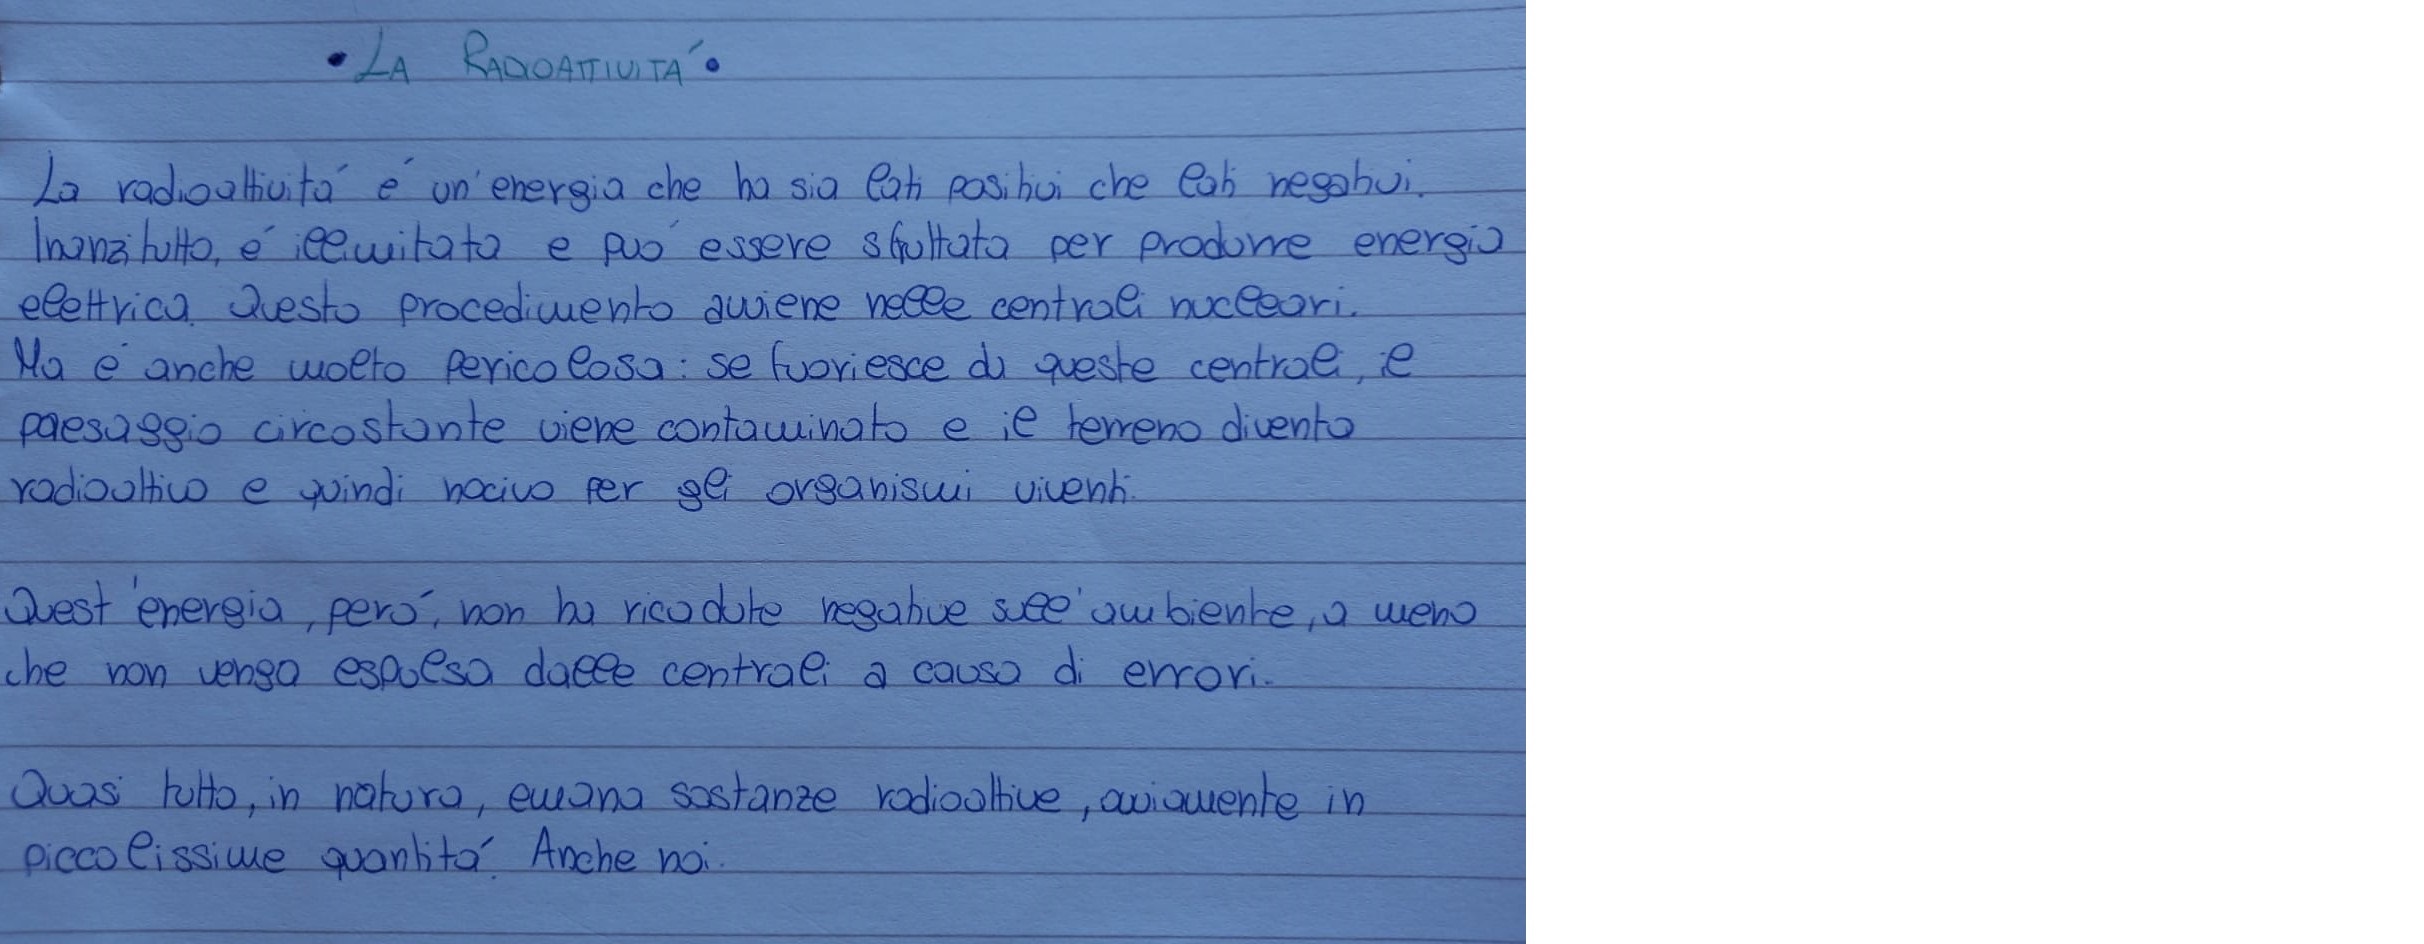 • LA RADIOATTIVITÁ •
La radioattivitá é un'energia che ha sia lati positivi che lati negativi.
Inanzitutto, é illimitata e puó essere sfruttata per produrre energia
elettrica. Questo procedimento avviene nelle centrali nucleari.
Ma é anche molto pericolosa: se fuoriesce da queste centrali, il
paesaggio circostante viene contaminato e il terreno diventa
radioattivo e quindi nocivo per gli organismi viventi.
Quest'energia, peró, non ha ricadute negative sull'ambiente, a meno
che non venga espulsa dalle centrali a causa di errori.
Quasi tutto, in natura, emana sostanze radioattive, ovviamente in
piccolissime quantitá. Anche noi.